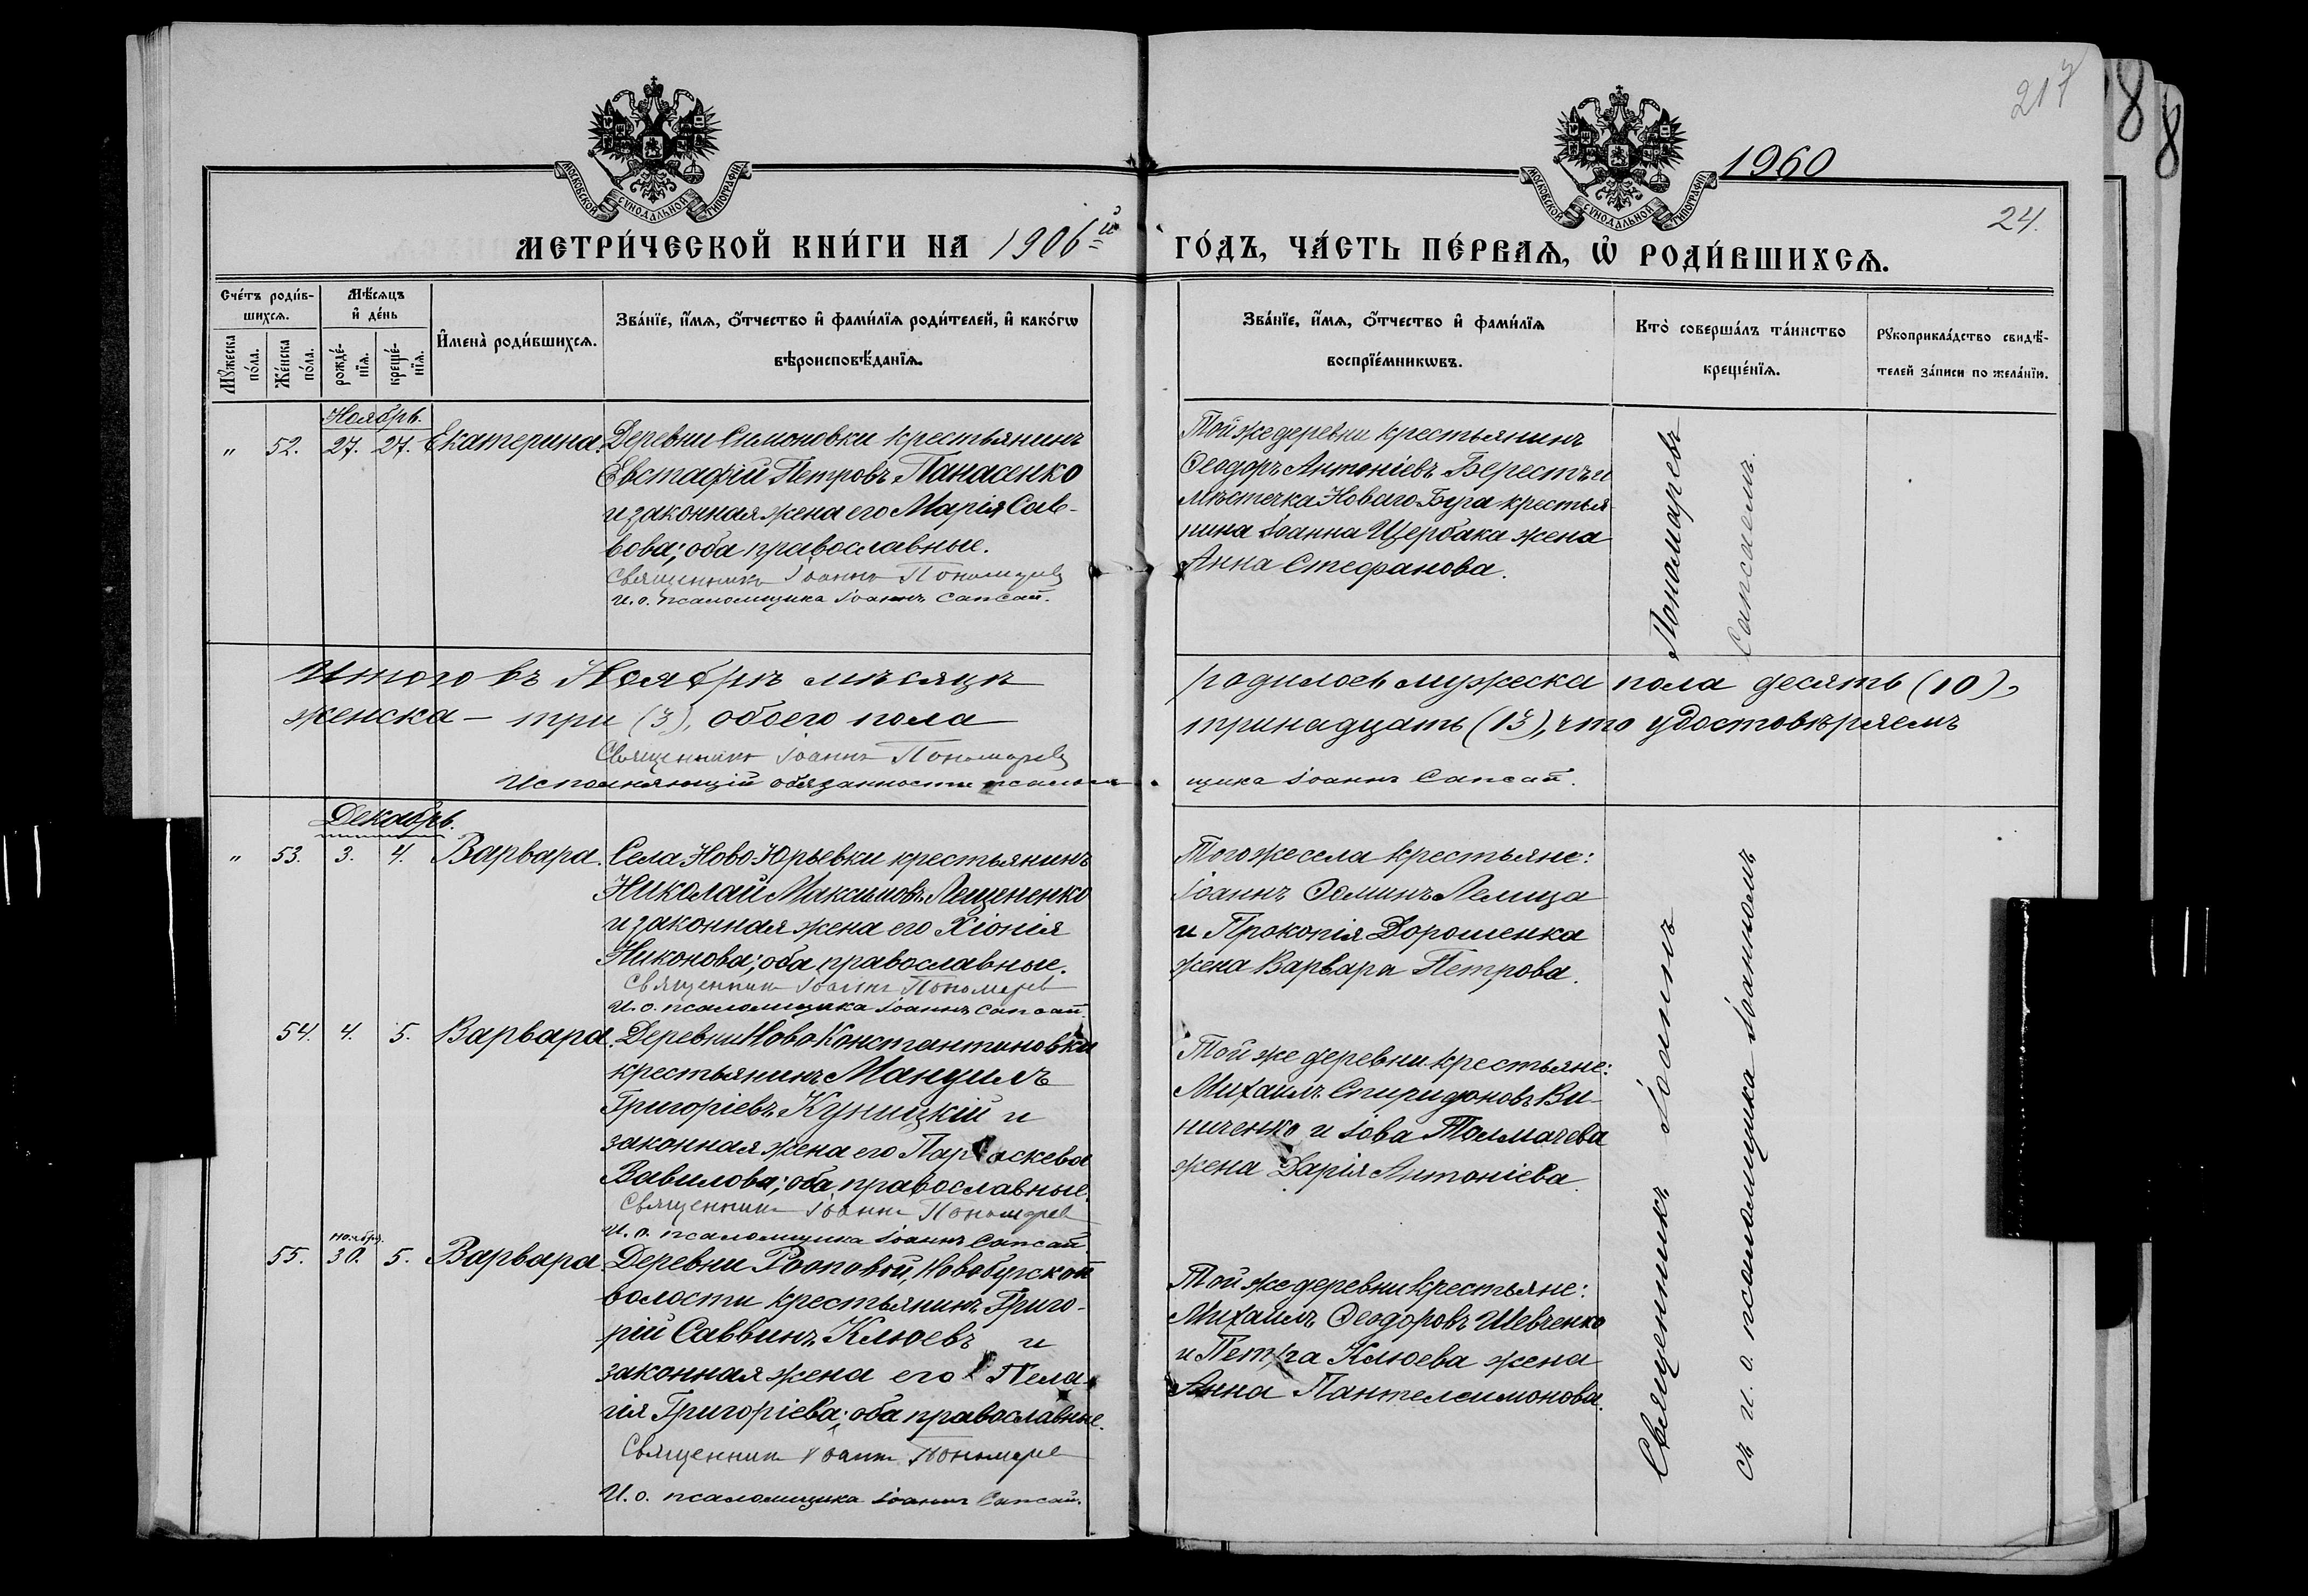 217
8
8
1960
24.
МОСКОВСКОЙ СѴНОДАЛЬНОЙ ТИПОГРАФІИ
МОСКОВСКОЙ СѴНОДАЛЬНОЙ ТИПОГРАФІИ
МЕТРИ́ЧЕСКОЙ КНИ́ГИ НА 1906й ГО́ДЪ, ЧА́СТЬ ПЕ́РВАѦ, Ѡ҆ РОДИ́ВШИХСѦ.
Сче́тъ роди́в-
шихсѧ.
Мꙋ́жеска по́ла.
Же́нска по́ла.
Мѣ́сѧцъ
и҆ де́нь
рожде́-
нїѧ.
креще́-
нїѧ.
И҆мена̀ роди́вшихсѧ.
Зва́нїе, и҆́мѧ, ѻ҆́тчество и҆ фами́лїѧ роди́телей, и҆ како́гѡ
вѣроисповѣ́данїѧ.
Зва́нїе, и҆́мѧ, ѻ҆́тчество и҆ фами́лїѧ
воспрїе́мникѡвъ.
Кто̀ соверша́лъ та́инство
креще́нїѧ.
Рꙋкоприкла́дство свидѣ́-
телей за́писи по жела́нїю.
Ноябрь.
" 52. 27. 27. Екатерина.
Деревни Симоновки крестьянинъ
Евстафій Петровъ Панасенко
и законная жена его Марія Сав-
вова; оба православные.
Священникъ Іоаннъ Пономаревъ
И. о. псаломщика Іоаннъ Сапсай.
Той же деревни крестьянинъ
Ѳеодоръ Антоніевъ Берестъ и
мѣстечка Новаго-Буга крестья-
нина Іоанна Щербака жена
Анна Стефанова.
Пономаревъ
Сапсаемъ.
Итого въ Ноябрѣ мѣсяцѣ родилось мужеска пола десять (10),
женска - три (3), обоего пола тринадцать (13), что удостовѣряемъ
Священникъ Іоаннъ Пономаревъ
Исполняющій обязанности псалом щика Іоаннъ Сапсай.
Декабрь.
" 53. 3. 4. Варвара.
Села Ново Юрьевки крестьянинъ
Николай Максимовъ Лещененко
и законная жена его Хіонія
Никонова; оба православные.
Священникъ Іоаннъ Пономарев
И. о. псаломщика Іоаннъ Сапсай.
Того же села крестьяне:
Іоаннъ Ѳоминъ Лемица
и Прокопія Дорошенка
жена Варвара Петрова.
54. 4. 5. Варвара.
Деревни Ново Константиновки
крестьянинъ Мануилъ
Григоріевъ Куницкій и
законная жена его Параскева
Вавилова; оба православные.
Священникъ Іоаннъ Пономарев
И. о. псаломщика Іоаннъ Сапсай
Той же деревни крестьяне:
Михаилъ Спиридоновъ Ви-
ниченко и Іова Толмачева
жена Дарія Антоніева.
ноября.
55. 30. 5. Варвара.
Деревни Рооповой, Новобугской
волости крестьянинъ Григо-
рій Саввинъ Клюевъ и
законная жена его Пела-
гія Григоріева; оба православные.
Священникъ Іоаннъ Пономарев
И. о. псаломщика Іоаннъ Сапсай.
Той же деревни крестьяне:
Михаилъ Ѳеодоровъ Шевченко
и Петра Клюева жена
Анна Пантелеимонова.
Священникъ Іоаннъ
съ и. о. псаломщика Іоанномъ